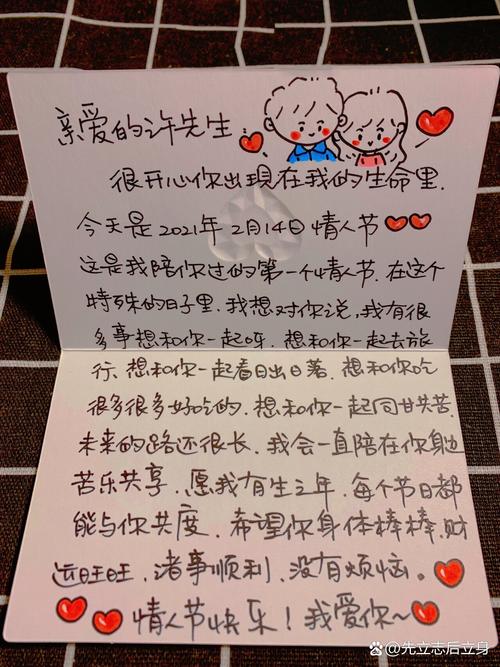 亲爱的许先生
很开心你出现在我的生命里.
今天是2021年2月14日情人节
这是我陪你过的第一个情人节.在这个
特殊的日子里.我想对你说,我有很
多事想和你一起呀.想和你一起去旅
行.想和你一起看日出日落.想和你吃
很多很多好吃的.想和你一起同甘共苦.
未来的路还很长.我会一直陪在你身边
苦乐共享.愿我有生之年.每个节日都
能与你共度.希望你身体棒棒.财
运旺旺.诸事顺利.没有烦恼。
情人节快乐!我爱你~
先立志后立身